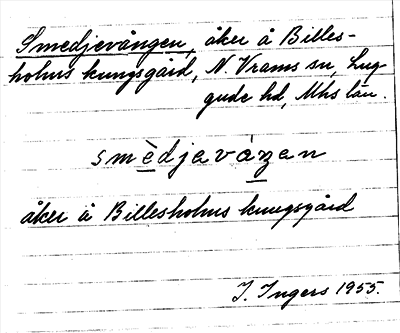 Smedjevången, åker å Billes-
holms kungsgård, N. Vrams sn, Lug-
gude hd, Mhs län.
smèdjaváŋen
åker å Billesholms kungsgård
J. Ingers 1955.